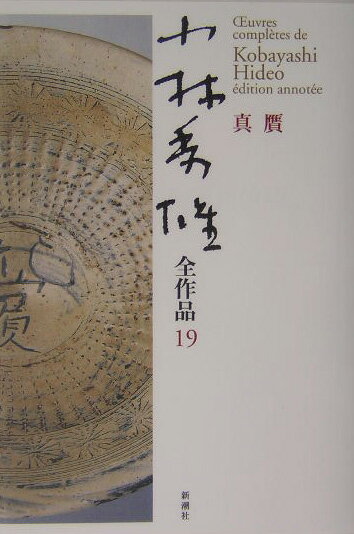 Œuvres
complètes de
Kobayashi
Hideo
édition annotée
真贋
小林秀雄
全作品19
新潮社